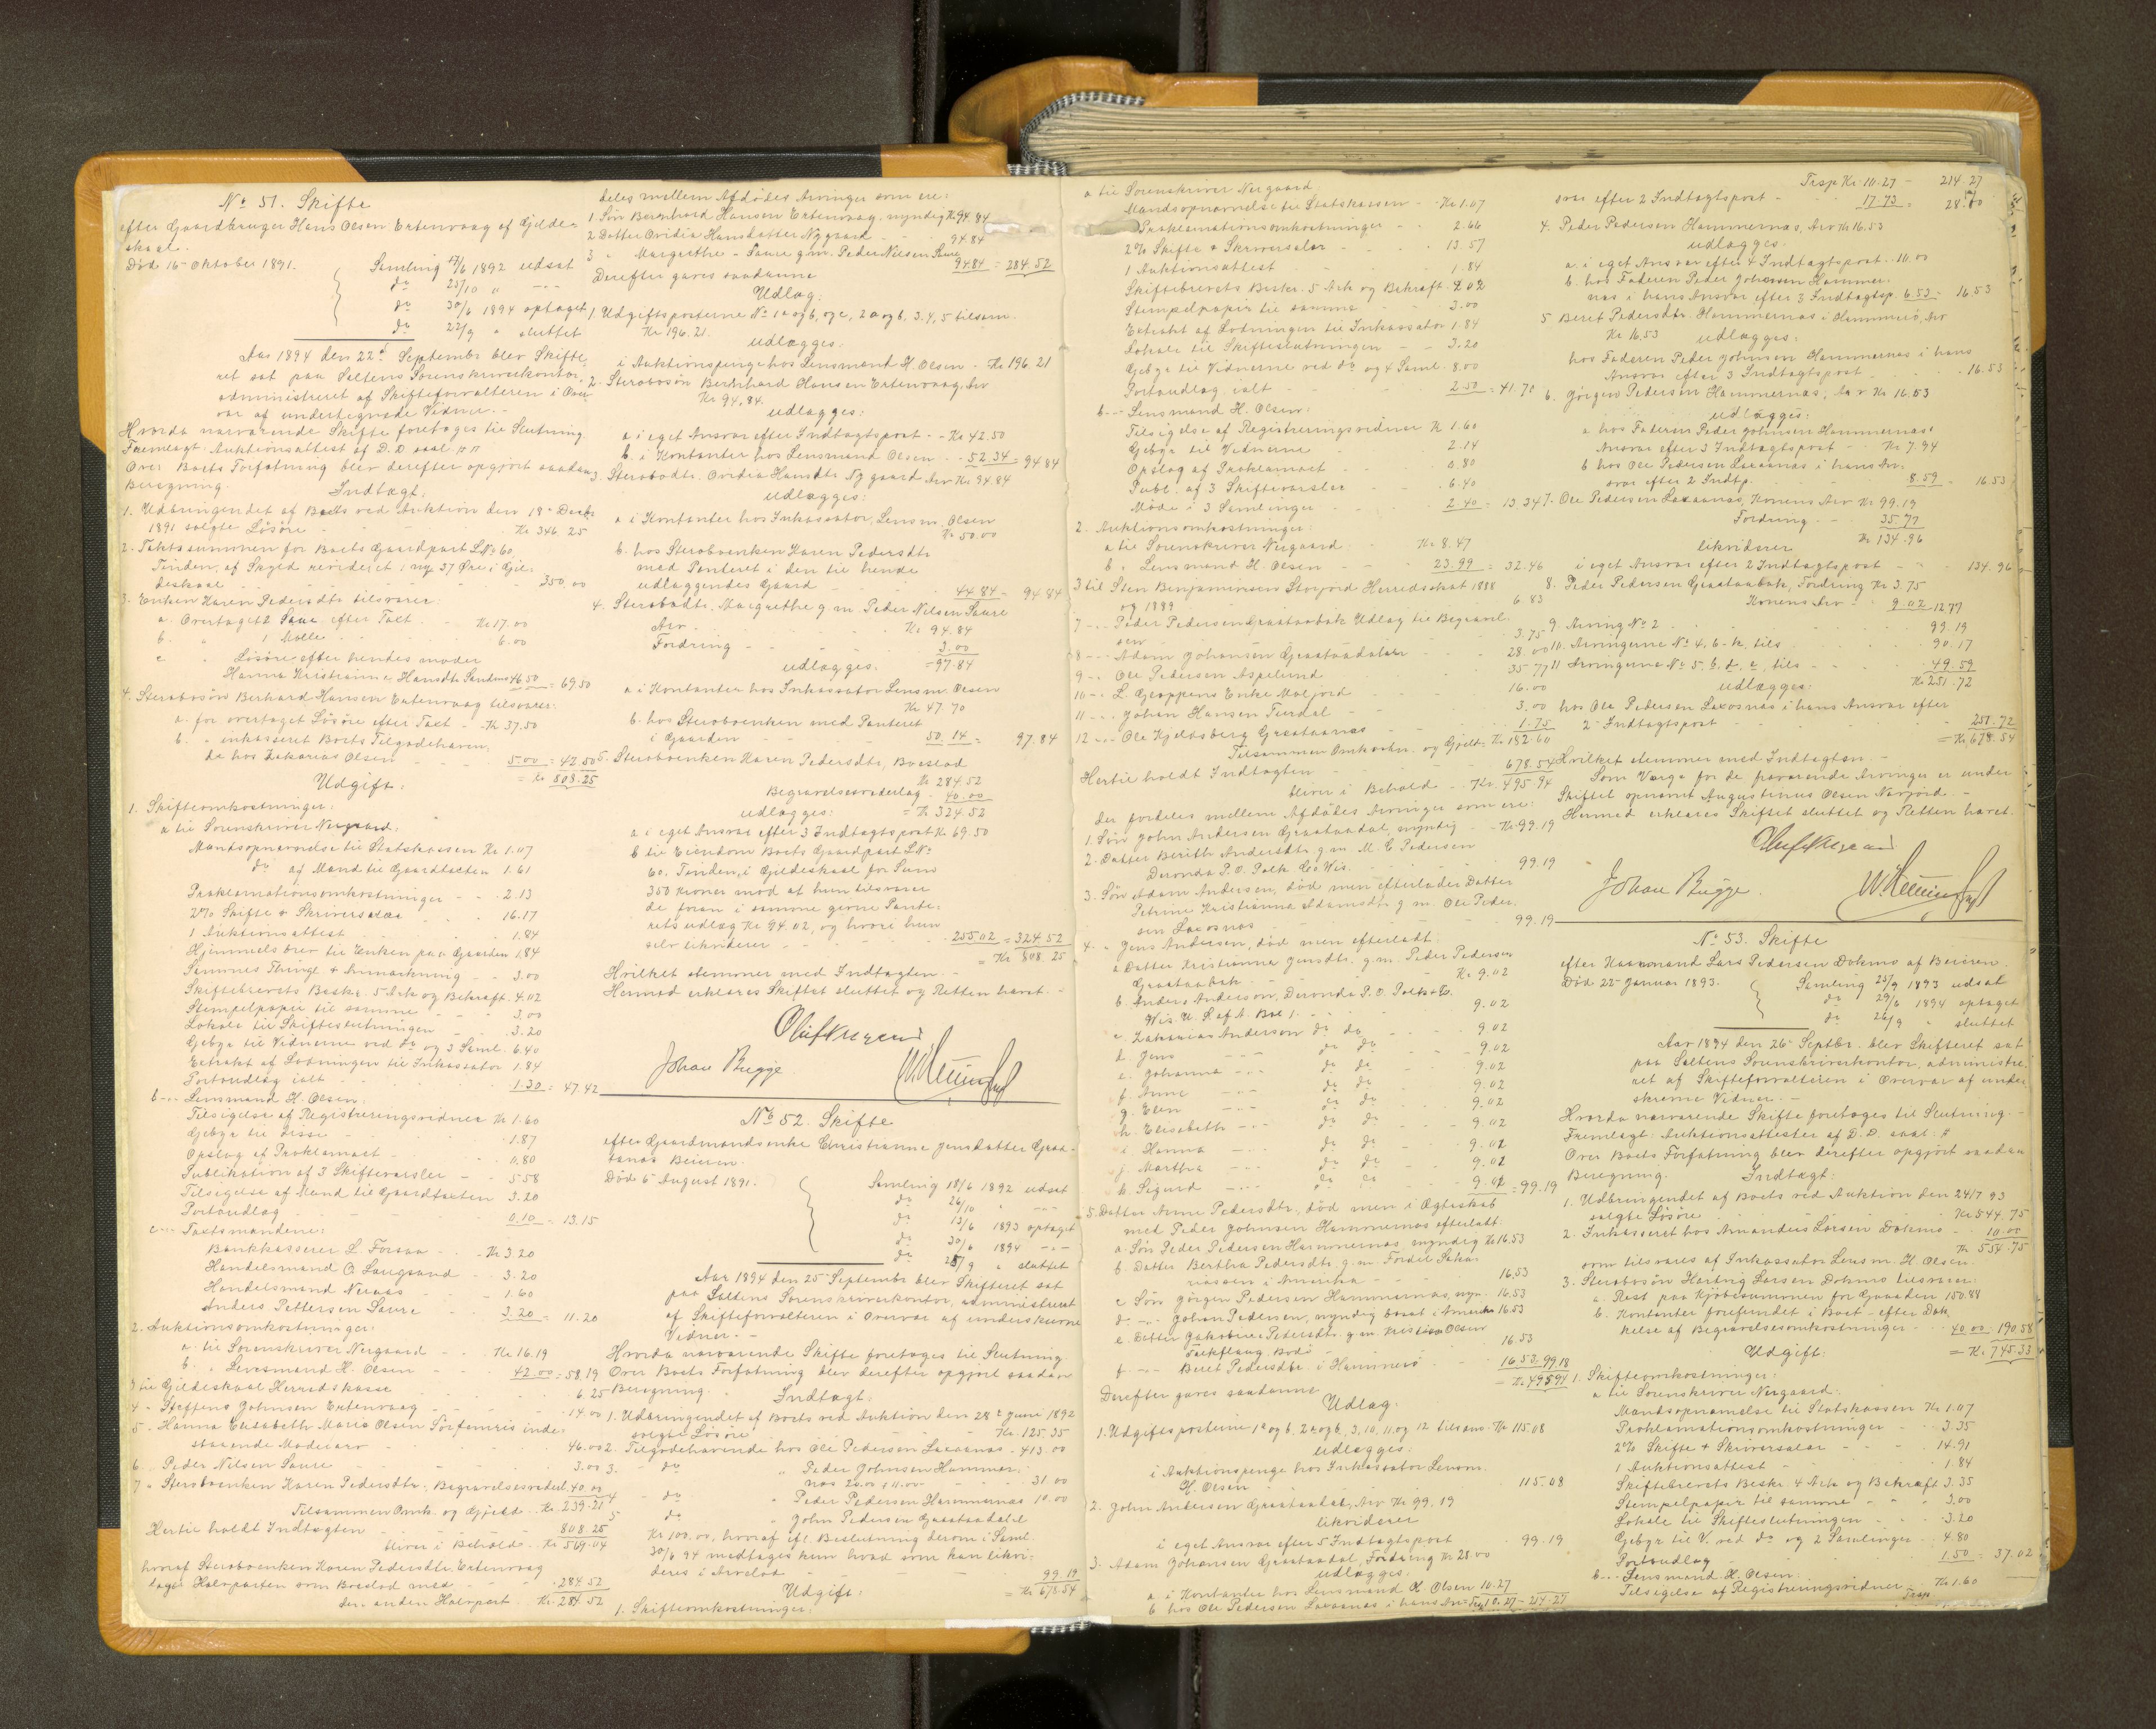 No 51. Skifte
efter Gaardbruger Hans Olsen Ertenvaag af Gjilde-
skaal.
Død 16 Oktober 1891.
Samling 17/6 1892 udsat
do 25/10 " -"-
do 30/6 1894 optaget
do 22/9 " sluttet
Aar 1894 den 22de September blev Skifte
ret sat paa Saltens Sorenskriverkontor,
administreret af Skifteforvalteren i Over
vær af undertegnede Vidner. -
Hvorda nærværende Skifte foretoges til Slutning.
Fremlagt: Auktionsattest af D. D. saal. #
Over Boets Forfatning blev derefter opgjort saadan
Beregning.
Indtægt:
1. Udbringendet af Boets ved Auktion den 18 Decbr
1891 solgte Løsøre - Kr 346.25
2. Taktssummen for Boets Gaardpart L No 60,
Tinden, af Skyld revideret i ny 37 Øre i Gil-
deskaal - 350 00
3. Enken Karen Pedersdtr tilsvarer:
a. Overtaget 2 Sauer efter Taxt - Kr 17.00
b. " 1 Molle - 6.00
c " Løsøre efter hendes moder
Hanna Kristianne Hansdtr Sandnes 46.50 = 69.50
4. Stervbosøn Berhard Hansen Ertenvaag tilsvarer:
a. for overtaget Løsøre efter Taxt - Kr 37.50
b. " inkasseret Boets Tilgodehaven-
de hos Zakarias Olsen - 5.00 = 42.50
= Kr 808.25
Udgift:
1. Skifteomkostninger:
a til Sorenskriver Nergaard:
Mandsopnævnelse til Statskassen Kr 1.07
do af Mand til Gaardtaxten 1.61
Proklamationsomkostninger - 2.13
2% Skifte & Skriversalær - 16.17
1 Auktionsattest - 1.84
Hjemmelsbrev til Enken paa Gaarden 1.84
Sammes Thingl. & Anmærkning - 3.00
Skiftebrevets Beskr. 5 Ark og Bekræft. 4.02
Stempelpapir til samme - 3.00
Lokale til Skifteslutningen - 3.20
Gebyr til Vidnerne ved do og 3 Saml. 6.40
Extrakt af Lodningen til Inkassator 1.84
Portoudlæg ialt - 1.30 = 47.42
b -"- Lensmand H. Olsen:
Tilsigelse af Registreringsvidner Kr 1.60
Gebyr til disse - 1.87
Opslag af Proklamaet - 0.80
Publikation af 3 Skiftevarsler - 5.58
Tilsigelse af Mand til Gaardtaxten 3.20
Portoudlæg - 0.10 = 13.15
c -"- Taxtsmændene:
Bankkasserer L. Forsaa - Kr 3.20
Handelsmand O. Langsand - 3.20
Handelsmand Neraas - 1.60
Anders Pettersen Saure - 3.20 = 11.20
2. Auktionsomkostninger:
a til Sorenskriver Nergaard - Kr 16.19
b. " Lensmand H. Olsen - 42.00 = 58.19
3 til Gildeskaal Herredskasse - 6.25
4 - Steffens Johnsen Ertenvaag - 14.00
5 - Hanna Elisabeth Marie Olsen Sørfinnris inde-
staaende Mødrearv - 46.00
6 - Peder Nilsen Saure - 3.00
7 " Stervboenken Karen Pedersdtr: Begravelsesvederl. 40.00
Tilsammen Omk. og Gjæld - Kr. 239.21
Hertil holdt Indtægten - 808.25
bliver i Behold - Kr 569.04
hvoraf Stervboenken Karen Pedersdtr Ertenvaag
tager Halvparten som Boeslod med - 284.52
den anden Halvpart - Kr. 284 52
deles mellem Afdødes Arvinger som ere:
1 Søn Bernhard Hansen Ertenvaag, myndig Kr 94 84
2 Datter Ovidia Hansdatter Nygaard - 94.84
3 " Margrethe - Saure g.m. Peder Nilsen Saure 94.84 = 284.52
Derefter gjøres saadanne
Udlæg:
1. Udgiftsposterne No 1 a og b, og c, 2 a og b, 3. 4, 5 tilsam.
Kr 196.21.
udlægges:
i Auktionspenge hos Lensmand H. Olsen - Kr 196.21
2. Stervbosøn Bernhard Hansen Ertenvaag, Arv
Kr 94.84.
udlægges:
a i eget Ansvar efter Indtægtspost - Kr 42.50
b. i Kontanter hos Lensmand Olsen - 52.34 = 94 84
3. Stervbodtr. Ovidia Hansdtr Nygaard Arv Kr 94.84
udlægges:
a i Kontanter hos Inkassator, Lensm. Olsen
Kr 50.00
b. hos Stervboenken Karen Pedersdtr
med Panteret i den til hende
udlæggendes Gaard - 44 84 = 94 84
4. Stervbodtr. Margrethe g.m. Peder Nilsen Saure
Arv - Kr 94.84
Fordring - 3.00
udlægges: = 97.84
a i Kontanter hos Inkassator Lensm. Olsen
Kr 47.70
b. hos Stervboenken med Panteret
i Gaarden - 50.14 = 97.84
5. Stervboenken Karen Pedersdtr, Boeslod
Kr 284.52
Begravelsesvederlag - 40.00
udlægges: = Kr 324.52
a i eget Ansvar efter 3 Indtægtspost Kr 69.50
b til Eiendom Boets Gaardpart L No
60, Tinden, i Gildeskaal for Sum
350 kroner mod at hun tilsvarer
de foran i samme givne Pante-
rets udlæg Kr 94.02, og hvori hun
selv likviderer - 255.02 = 324.52
= Kr 808.25
Hvilket stemmer med Indtægten. -
Hermed erklæres Skiftet sluttet og Retten hævet. -
Johan Bugge.
No 52. Skifte
efter Gaardmandsenke Christianne Jensdatter Graa-
tanæs Beieren.
Død 5 August 1891.
Samling 18/6 1892 udsat
do 26/10 " -"-
do 13/6 1893 optaget
do 30/6 1894 -"-
do 25/9 " sluttet
Aar 1894 den 25 September blev Skifteret sat
paa Saltens Sorenskriverkontor, administreret
af Skifteforvalteren i Overvær af underskrevne
Vidner. -
Hvorda nærværende Skifte foretoges til Slutning.
Over Boets Forfatning blev derefter opgjort saadan
Beregning.
Indtægt:
1. Udbringendet af Boets ved Auktion den 28de Juni 1892
solgte Løsøre - Kr. 125.35
2. Tilgodehavende hos Ole Pedersen Laxaanæs - 413 00
3. do " Peder Johnsen Hammer-
næs 20.00 + 11.00 - 31 00
4 do " Peder Pedersen Hammernæs 10.00
5 do " John Pedersen Graataadal
Kr 100.00, hvoraf efl. Beslutning derom i Saml.
30/6 94 medtages kun hvad som kan likvi-
deres i Arvelod - 99 19
= Kr 678.54
Udgift:
1. Skifteomkostninger:
a til Sorenskriver Nergaard:
Mandsopnævnelse til Statskassen - Kr 1.07
Proklamationsomkostninger - 2.66
2% Skifte & Skriversalær - 13.57
1 Auktionsattest - 1.84
Skiftebrevets Beskr. 5 Ark og Bekræft. 4.02
Stempelpapir til samme - 3.00
Extrakt af Lodningen til Inkassator 1.84
Lokale til Skifteslutningen - 3.20
Gebyr til Vidnerne ved do og 4 Saml. 8.00
Portoudlæg ialt - 2.50 = 41.70
b -"- Lensmand H. Olsen:
Tilsigelse af Registreringsvidner Kr 1.60
Gebyr til Vidnerne - 2.14
Opslag af Proklamaet - 0.80
Publ. af 3 Skiftevarsler - 6.40
Møde i 3 Samlinger - 2.40 = 13 34
2. Auktionsomkostninger:
a til Sorenskriver Nergaard - Kr 8.47
b. " Lensmand H. Olsen - 23.99 = 32.46
3 til Sten Benjaminsen Storjord Herredsskat 1888
og 1889 - 6.83
7 -"- Peder Pedersen Graataabak Udlæg til Begravel-
sen - 3.75
8 -"- Adam Johansen Graataadalen - 28.00
9 -"- Ole Pedersen Aspelund - 35-77
10 -"- L. Geappens Enke Maljord - 16.00
11 -"- Johan Hansen Turdal - 3.00
12 -"- Ole Kjeldsberg Graataanæs - 1.75
Tilsammen Omkostn. og Gjæld: Kr 182.60
Hertil holdt Indtægten - 678.54
bliver i Behold - Kr. 495 94
der fordeles mellem Afdødes Arvinger som ere:
1. Søn John Andersen Graataadal, myndig - Kr 99.19
2. Datter Berith Andersdtr. g.m. M. C. Pedersen
Deronda P.O. Polk Co Wis. - 99.19
3. Søn Adam Andersen, død men efterlader Datter
Petrine Kristianna Adamsdtr g.m. Ole Peder-
sen Laxosnæs - 99.19
4. " Jens Andersen, død men efterladt:
a Datter Kristianna Jensdtr. g.m. Peder Pedersen
Graataabak - Kr 9.02
b. Anders Anderson, Deronda P.O. Polk Co.
Wis U. S. af N. Am. 1. - 9.02
c. Zakarias Anderson do do - 9.02
d. Jens -"- do do - 9.02
e. Johanna -"- do do - 9.02
f. Anne -"- do do - 9.02
g. Elen -"- do do - 9.02
h. Elisabeth -"- do do - 9.02
i. Hanna -"- do do - 9.02
j. Martha -"- do do - 9.02
k. Sigurd -"- do do - 9.02 = 99.19
5. Datter Anne Pedersdtr., død men i Ægteskab
med Peder Johnsen Hammernæs efterladt:
a. Søn Peder Pedersen Hammernæs, myndig Kr 16.53
b. Datter Bertha Pedersdtr. g.m. Fordel Zaka-
riassen i Amerika - 16.53
c Søn Jørgen Pedersen Hammernæs, myn. 16.53
d. -"- Johan Pedersen, myndig bosat i Amerika 16.53
e. Datter Jakobine Pedersdtr. g.m. Kristian Olsen
Bodø - 16.53
f -"- Beret Pedersdtr. i Hammerø - 16.53 99.18
= Kr. 495 94
Derefter gjøres saadanne
Udlæg.
1. Udgiftsposterne 1 a og b, 2 a og b, 3, 10, 11 og 12 tilsam. Kr 115.08
udlægges:
i Auktionspenge hos Inkassator Lensm.
H. Olsen - 115.08
2. John Andersen Graataadal, Arv Kr 99.19
likviderer
i eget Ansvar efter 5 Indtægtspost - 99.19
3. Adam Johansen Graataadal, Fordring Kr 28.00
udlægges:
a i Kontanter hos Lensmand H. Olsen 10.27
b hos Ole Pedersen Laxaanæs i hans An- Trsp 10.27 - 214.27
Trsp Kr. 10.27 - 214 27
svar efter 2 Indtægtspost - 17.73 = 28.00
4. Peder Pedersen Hammernæs, Arv Kr 16.53
udlægges:
a. i eget Ansvar efter 4 Indtægtspost. 10.00
b. hos Faderen Peder Johnsen Hammer-
næs i hans Ansvar efter 3 Indtægtsp. 6.53 = 16.53
5 Beret Pedersdtr. Hammernæs i Hammerø, Arv
Kr 16.53 udlægges:
hos Faderen Peder Johnsen Hammernæs i hans
Ansvar efter 3 Indtægtspost - 16.53
6. Jørgen Pedersen Hammernæs, Arv Kr 16.53
udlægges:
a hos Faderen Peder Johnsen Hammernæs'
Ansvar efter 3 Indtægtspost - Kr 7.94
b hos Ole Pedersen Laxaanæs i hans An-
svar efter 2 Indtp. - 8.59 = 16.53
7. Ole Pedersen Laxaanæs, Konens Arv Kr 99.19
Fordring - 35.77
likviderer Kr 134.96
i eget Ansvar efter 2 Indtægtspost - 134.96
8. Peder Pedersen Graataabak, Fordring Kr 3.75
Konens Arv - 9.02 12 77
9. Arving No 2 - 99.19
10. Arvingerne No 4, b-k, tils - 90.17
11 Arvingerne No 5. b, d, e, tils - 49.59
udlægges: Kr 251.72
hos Ole Pedersen Laxosnæs i hans Ansvar efter
2 Indtægtspost - 251.72
= Kr 678.54
Hvilket stemmer med Indtægten. -
Som Værge for de fraværende Arvinger er under
Skiftet opnævnt Augustinus Olsen Navjord. -
Hermed erklæres Skiftet sluttet og Retten hævet.
Johan Bugge.
No 53. Skifte
efter Kaarmand Lars Pedersen Dokmo af Beieren.
Død 22 Januar 1893.
Samling 25/9 1893 udsat
do 29/6 1894 optaget
do 26/9 " sluttet
Aar 1894 den 26 Septbr. blev Skifteret sat
paa Saltens Sorenskriverkontor, administre-
ret af Skifteforvalteren i Overvær af under-
skrevne Vidner. -
Hvorda nærværende Skifte foretoges til Slutning. -
Fremlagt: Auktionsattester af D. D. saal. #
Over Boets Forfatning blev derefter opgjort saadan
Beregning.
Indtægt:
1. Udbringendet af Boets ved Auktion den 24/7 93
solgte Løsøre - Kr 544.75
2. Inkasseret hos Amandus Larsen Dokmo - 10.00
Kr 554.75
som tilsvares af Inkassator Lensm. H. Olsen.
3. Stervbosøn Hartvig Larsen Dokmo tilsvarer:
a. Rest paa Kjøbesummen for Gaarden 150.58
b. Kontanter forefundet i Boet - efter Dæk-
kelse af Begravelsesomkostninger - 40.00 = 190.58
= Kr. 745.33
Udgift:
1. Skifteomkostninger:
a til Sorenskriver Nergaard:
Mandsopnævnelse til Statskassen Kr 1.07
Proklamationsomkostninger - 3.35
2% Skifte & Skriversalær - 14.91
1 Auktionsattest - 1.84
Skiftebrevets Beskr. 4 Ark og Bekræft 3.35
Stempelpapir til samme - 3.00
Lokale til Skifteslutningen - 3.20
Gebyr til V. ved do og 2 Samlinger - 4.80
Portoudlæg - 1.50 = 37.02
b -"- Lensmand H. Olsen:
Tilsigelse af Registreringsvidner Kr 1.60
Trsp